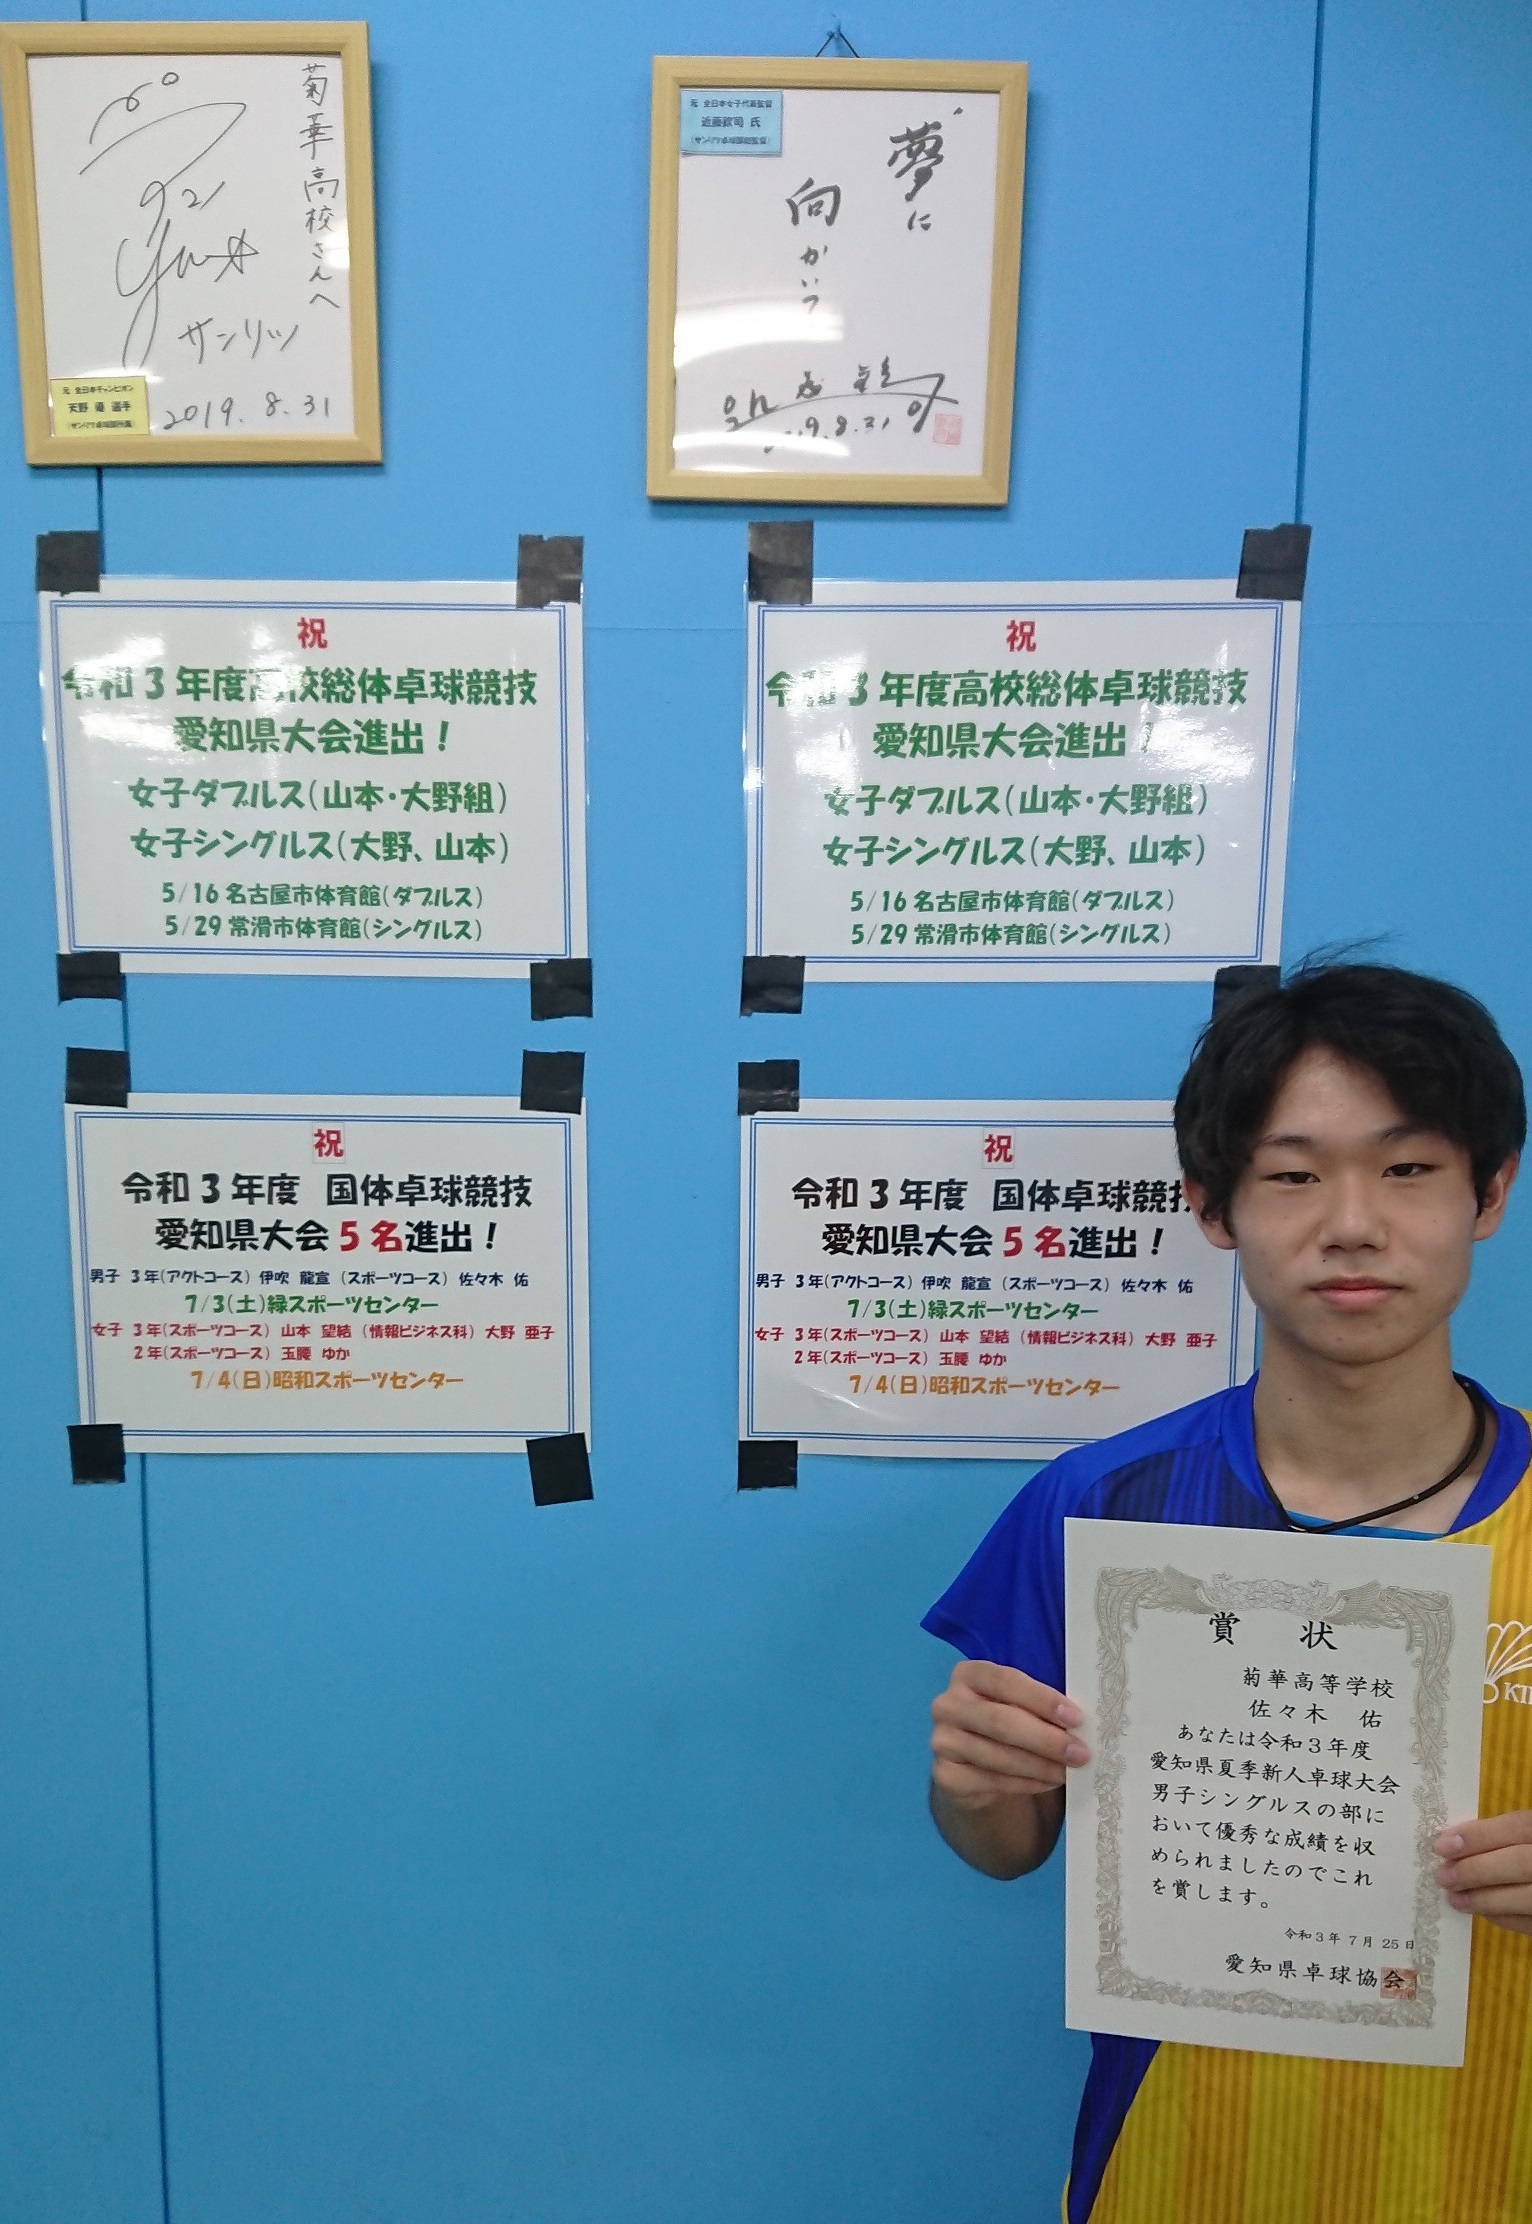 菊華高校さんへ
サンリツ
2019.8.31
元 全日本チャンピオン
天野 優 選手
(サンリツ卓球部所属)
元 全日本女子代表監督
近藤欽司 氏
(サンリツ卓球部総監督)
夢に
向かって
祝
令和3年度高校総体卓球競技
愛知県大会進出！
女子ダブルス（山本・大野組）
女子シングルス（大野、山本）
5/16 名古屋市体育館（ダブルス）
5/29 常滑市体育館（シングルス）
祝
令和3年度高校総体卓球競技
愛知県大会進出！
女子ダブルス（山本・大野組）
女子シングルス（大野、山本）
5/16 名古屋市体育館（ダブルス）
5/29 常滑市体育館（シングルス）
祝
令和3年度 国体卓球競技
愛知県大会5名進出！
男子 3年（アクトコース） 伊吹 龍宣 （スポーツコース） 佐々木 佑
7/3（土）緑スポーツセンター
女子 3年（スポーツコース） 山本 望結 （情報ビジネス科） 大野 亜子
2年（スポーツコース） 玉腰 ゆか
7/4（日）昭和スポーツセンター
祝
令和3年度 国体卓球競技
愛知県大会5名進出！
男子 3年（アクトコース） 伊吹 龍宣 （スポーツコース） 佐々木 佑
7/3（土）緑スポーツセンター
女子 3年（スポーツコース） 山本 望結 （情報ビジネス科） 大野 亜子
2年（スポーツコース） 玉腰 ゆか
7/4（日）昭和スポーツセンター
賞 状
菊華高等学校
佐々木 佑
あなたは令和3年度
愛知県夏季新人卓球大会
男子シングルスの部に
おいて優秀な成績を収
められましたのでこれ
を賞します。
令和3年 7月 25日
愛知県卓球協会